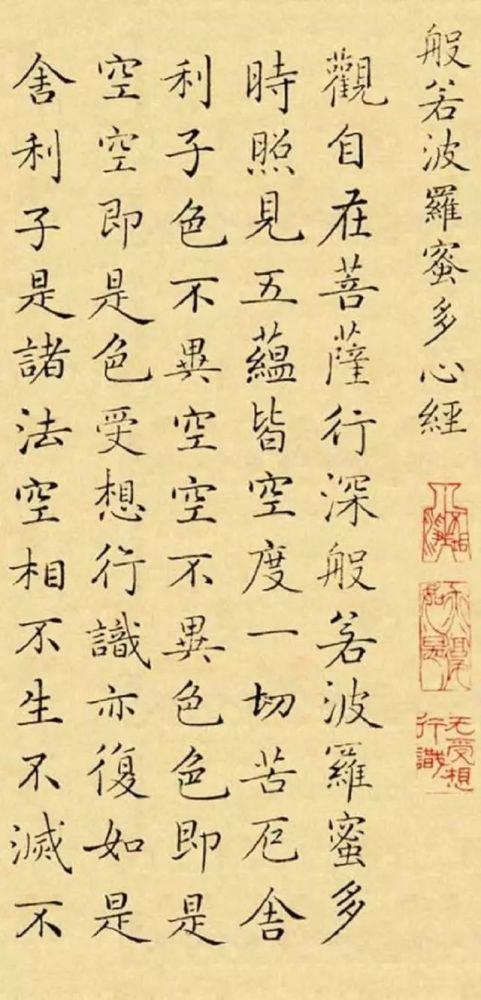 般若波羅蜜多心經
无受想
行識
觀自在菩薩行深般若波羅蜜多
時照見五蘊皆空度一切苦厄舎
利子色不異空空不異色色即是
空空即是色受想行識亦復如是
舎利子是諸法空相不生不滅不